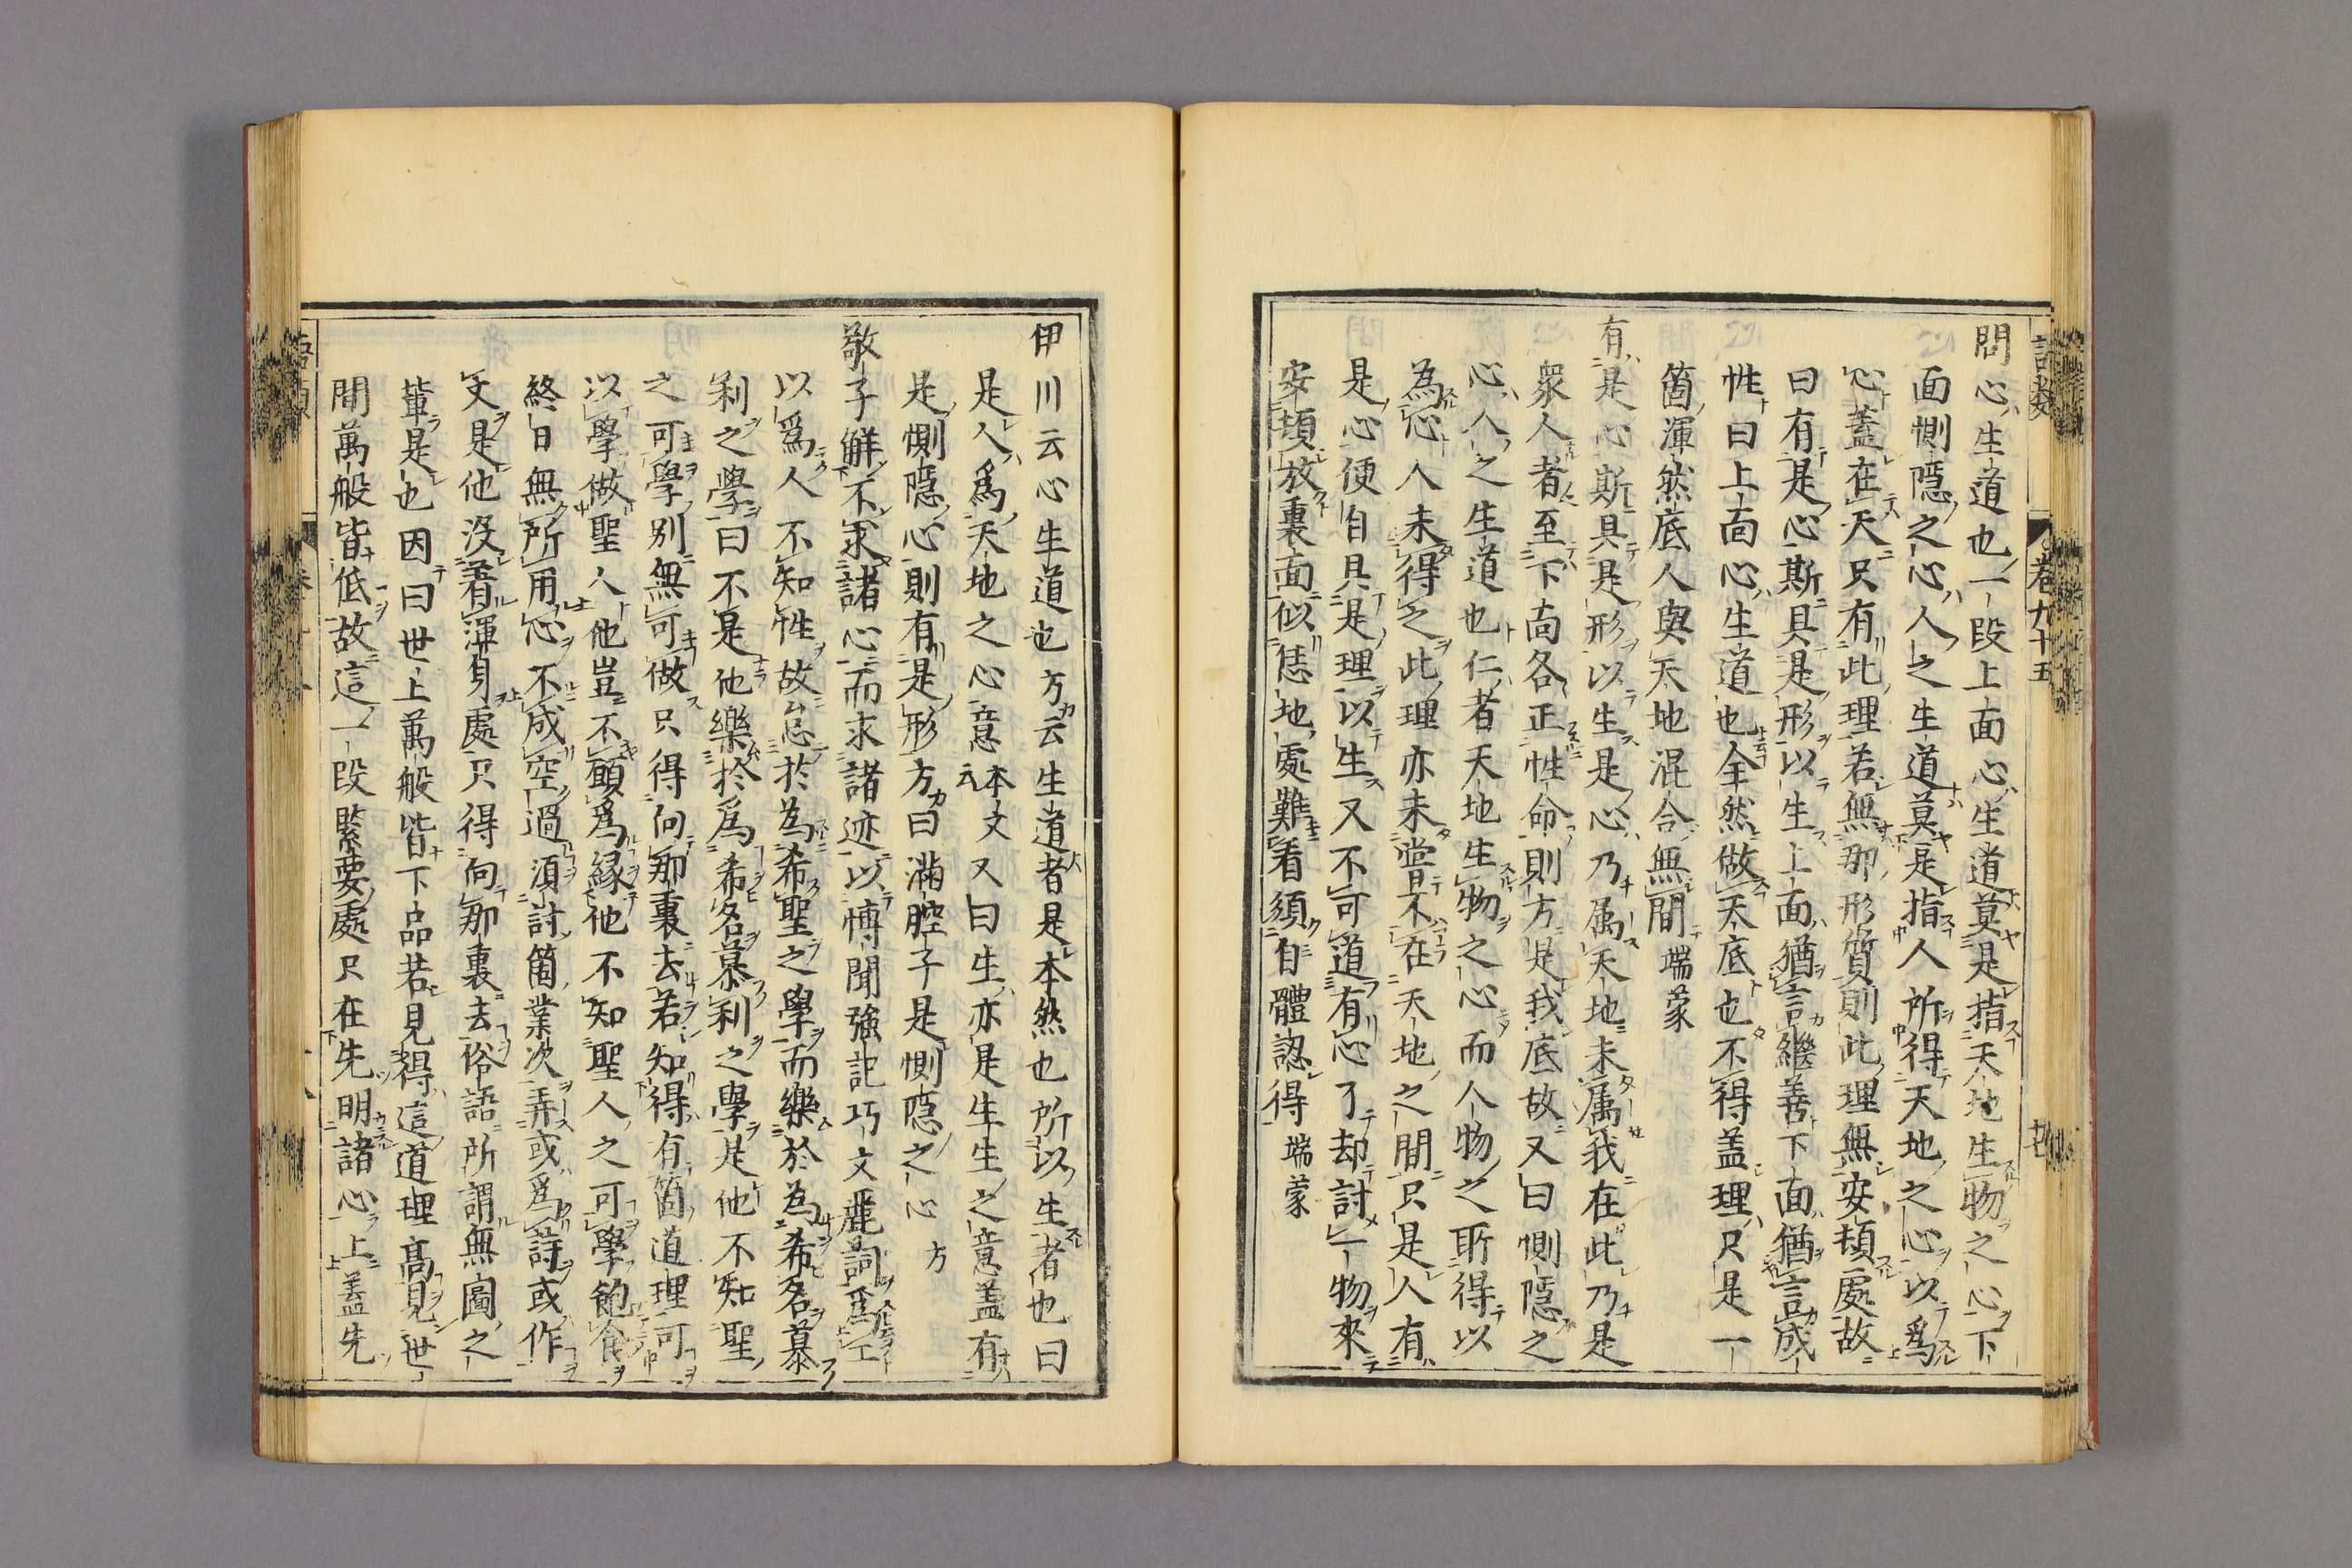 問心生道也一段上面心生道莫是指天地生物之心下
面惻隱之心人之生道莫是指人所得天地之心以爲
心蓋在天只有此理若無那形質則此理無安頓處故
曰有是心斯具是形以生上面猶言繼善下面猶言成
性曰上面心生道也全然做天底也不得盖理只是一
箇渾然底人與天地混合無間端蒙
有是心斯具是形以生是心乃属天地未属我在此乃是
衆人者至下面各正性命則方是我底故又曰惻隱之
心人之生道也仁者天地生物之心而人物之所得以
為心人未得之此理亦未嘗不在天地之間只是人有
是心便自具是理以生又不可道有心了却討一物來
安頓放裏面似恁地處難看須自體認得端蒙
伊川云心生道也方云生道者是本然也所以生者也曰
是人爲天地之心意本文云又曰生亦是生生之意盖有
是惻隱心則有是形方曰滿腔子是惻隱之心方
敬子觧不求諸心而求諸迹以博聞強記巧文麗詞爲工
以爲人不知性故怠於為希聖之學而樂於為希名慕
利之學曰不是他樂於爲希名慕利之學是他不知聖
之可學别無可做只得向那裏去若知得有箇道理可
以學做聖人他豈不願爲緣他不知聖人之可學飽食
終日無所用心不成空過須討箇業次弄或爲詩或作
文是他沒着渾身處只得向那裏去俗語所謂無圖之
輩是也因曰世上萬般皆下品若見得這道理高見世
間萬般皆低故這一段緊要處只在先明諸心上盖先
語類
卷九十五
廿七